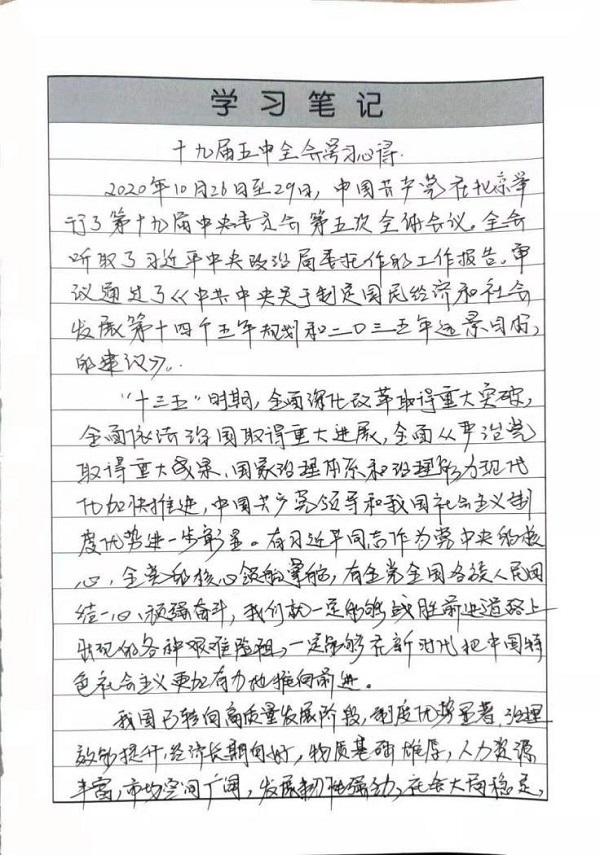 学习笔记
十九届五中全会学习心得.
2020年10月26日至29日，中国共产党在北京举
行了第十九届中央委员会第五次全体会议。全会
听取了习近平中央政治局委托作的工作报告，审
议通过了《中共中央关于制定国民经济和社会
发展第十四个五年规划和二〇三五年远景目标，
的建议》。
“十三五”时期，全面深化改革取得重大突破，
全面依法治国取得重大进展，全面从严治党
取得重大成果、国家治理体系和治理能力现代
化加快推进，中国共产党领导和我国社会主义制
度优势进一步彰显。有习近平同志作为党中央的核
心，全党的核心领航掌舵，有全党全国各族人民团
结一心、顽强奋斗，我们就一定能够战胜前进道路上
出现的各种艰难险阻，一定能够在新时代把中国特
色社会主义更加有力地推向前进。
我国已转向高质量发展阶段，制度优势显著，治理
效能提升，经济长期向好，物质基础雄厚，人力资源
丰富，市场空间广阔，发展韧性强劲，社会大局稳定，